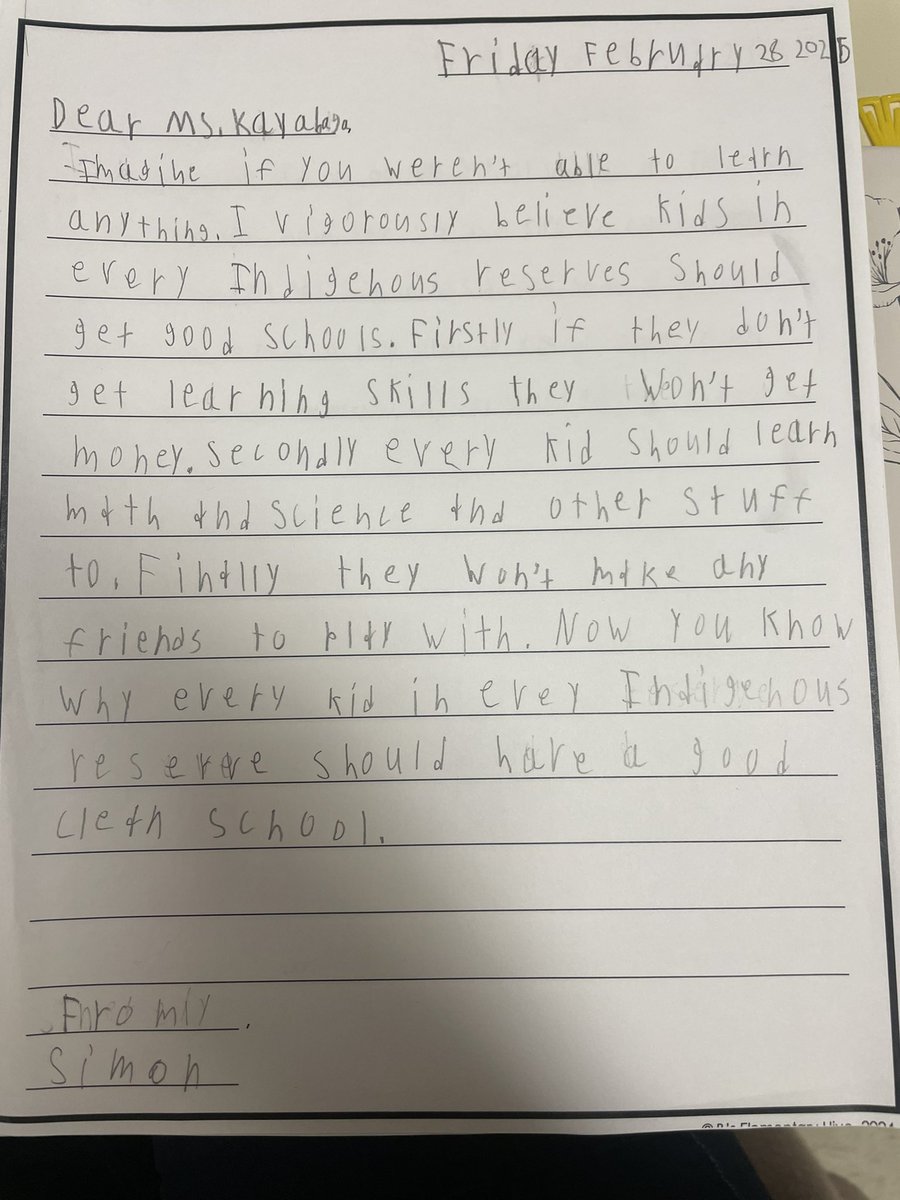 Friday February 28 2025
Dear Ms. Kayabaga,
Imagine if you weren't able to learn
anything. I vigorously believe kids in
every Indigenous reserves should
get good schools. Firstly if they don't
get learning skills they won't get
money. Secondly every kid should learn
math and science and other stuff
to. Finally they won't make any
friends to play with. Now you know
why every kid in evey Indigenous
reserve should have a good
clean school.
Simon